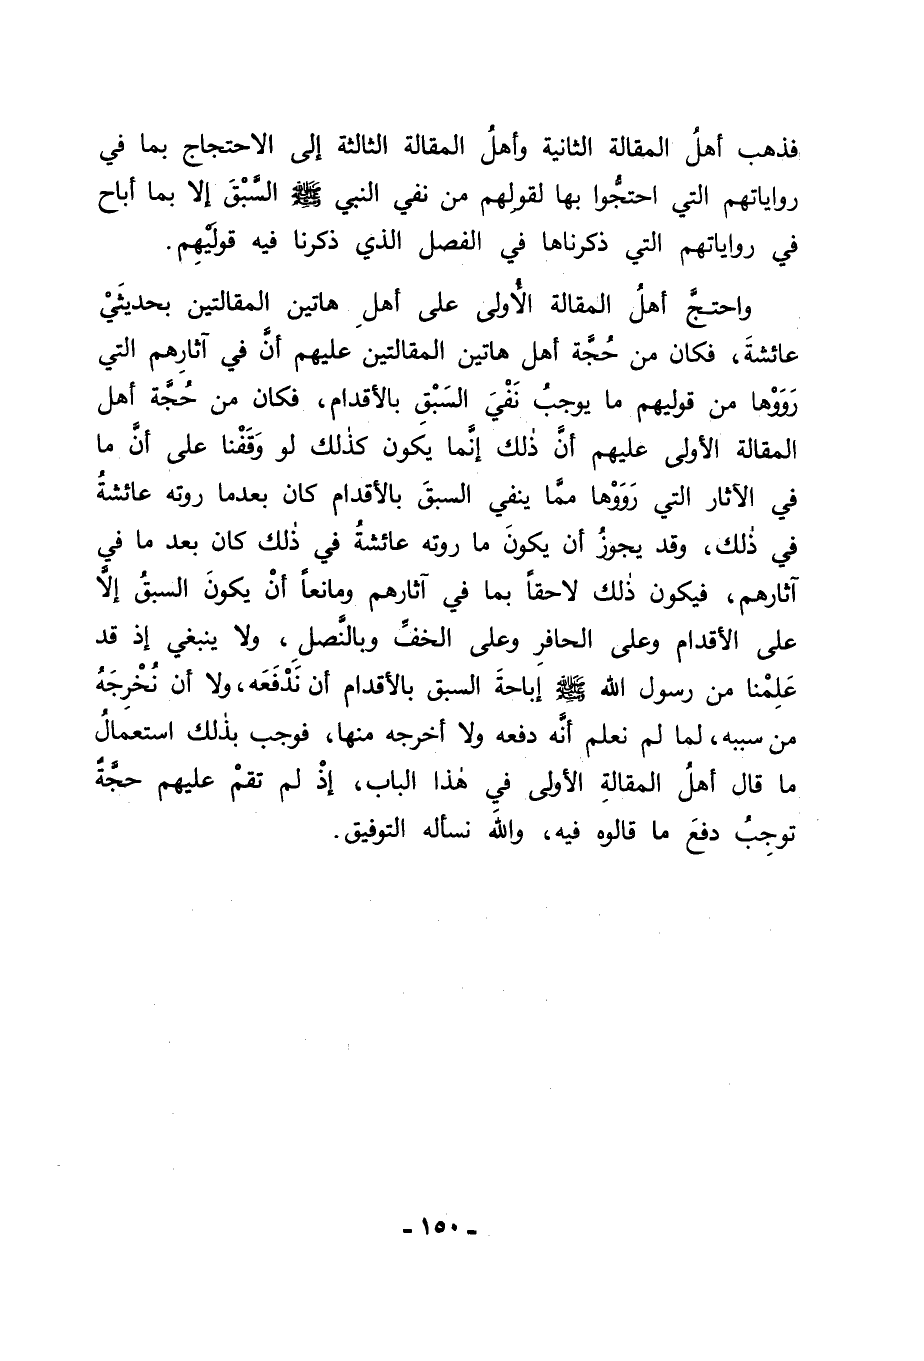 فذهب أهلُ المقالة الثانية وأهلُ المقالة الثالثة إلى الاحتجاج بما في
رواياتهم التي احتجُّوا بها لقولِهم من نفي النبي ﷺ السَّبْقَ إلا بما أباح
في رواياتهم التي ذكرناها في الفصل الذي ذكرنا فيه قولَيْهِم.
واحتجَّ أهلُ المقالة الأُولى على أهلِ هاتين المقالتين بحديثَيْ
عائشةَ، فكان من حُجَّة أهل هاتين المقالتين عليهم أنَّ في آثارِهم التي
رَوَوْها من قوليهم ما يوجبُ نَفْيَ السَبْقِ بالأقدام، فكان من حُجَّة أهل
المقالة الأولى عليهم أنَّ ذٰلك إنَّما يكون كذٰلك لو وَقَفْنا على أنَّ ما
في الآثار التي رَوَوْها ممَّا ينفي السبقَ بالأقدام كان بعدما روته عائشةُ
في ذٰلك، وقد يجوزُ أن يكونَ ما روته عائشةُ في ذٰلك كان بعد ما في
آثارهم، فيكون ذٰلك لاحقاً بما في آثارهم ومانعاً أنْ يكونَ السبقُ إلَّا
على الأقدام وعلى الحافرِ وعلى الخفِّ وبالنَّصلِ، ولا ينبغي إذ قد
عَلِمْنا من رسول الله ﷺ إباحةَ السبق بالأقدام أن نَدْفَعَه، ولا أن نُخْرِجَهُ
من سببه، لما لم نعلم أنَّه دفعه ولا أخرجه منها، فوجب بذٰلك استعمالُ
ما قال أهلُ المقالةِ الأولى في هٰذا الباب، إذْ لم تقمْ عليهم حجَّةٌ
توجِبُ دفعَ ما قالوه فيه، واللهَ نسأله التوفيق.
ـ ١٥٠ ـ